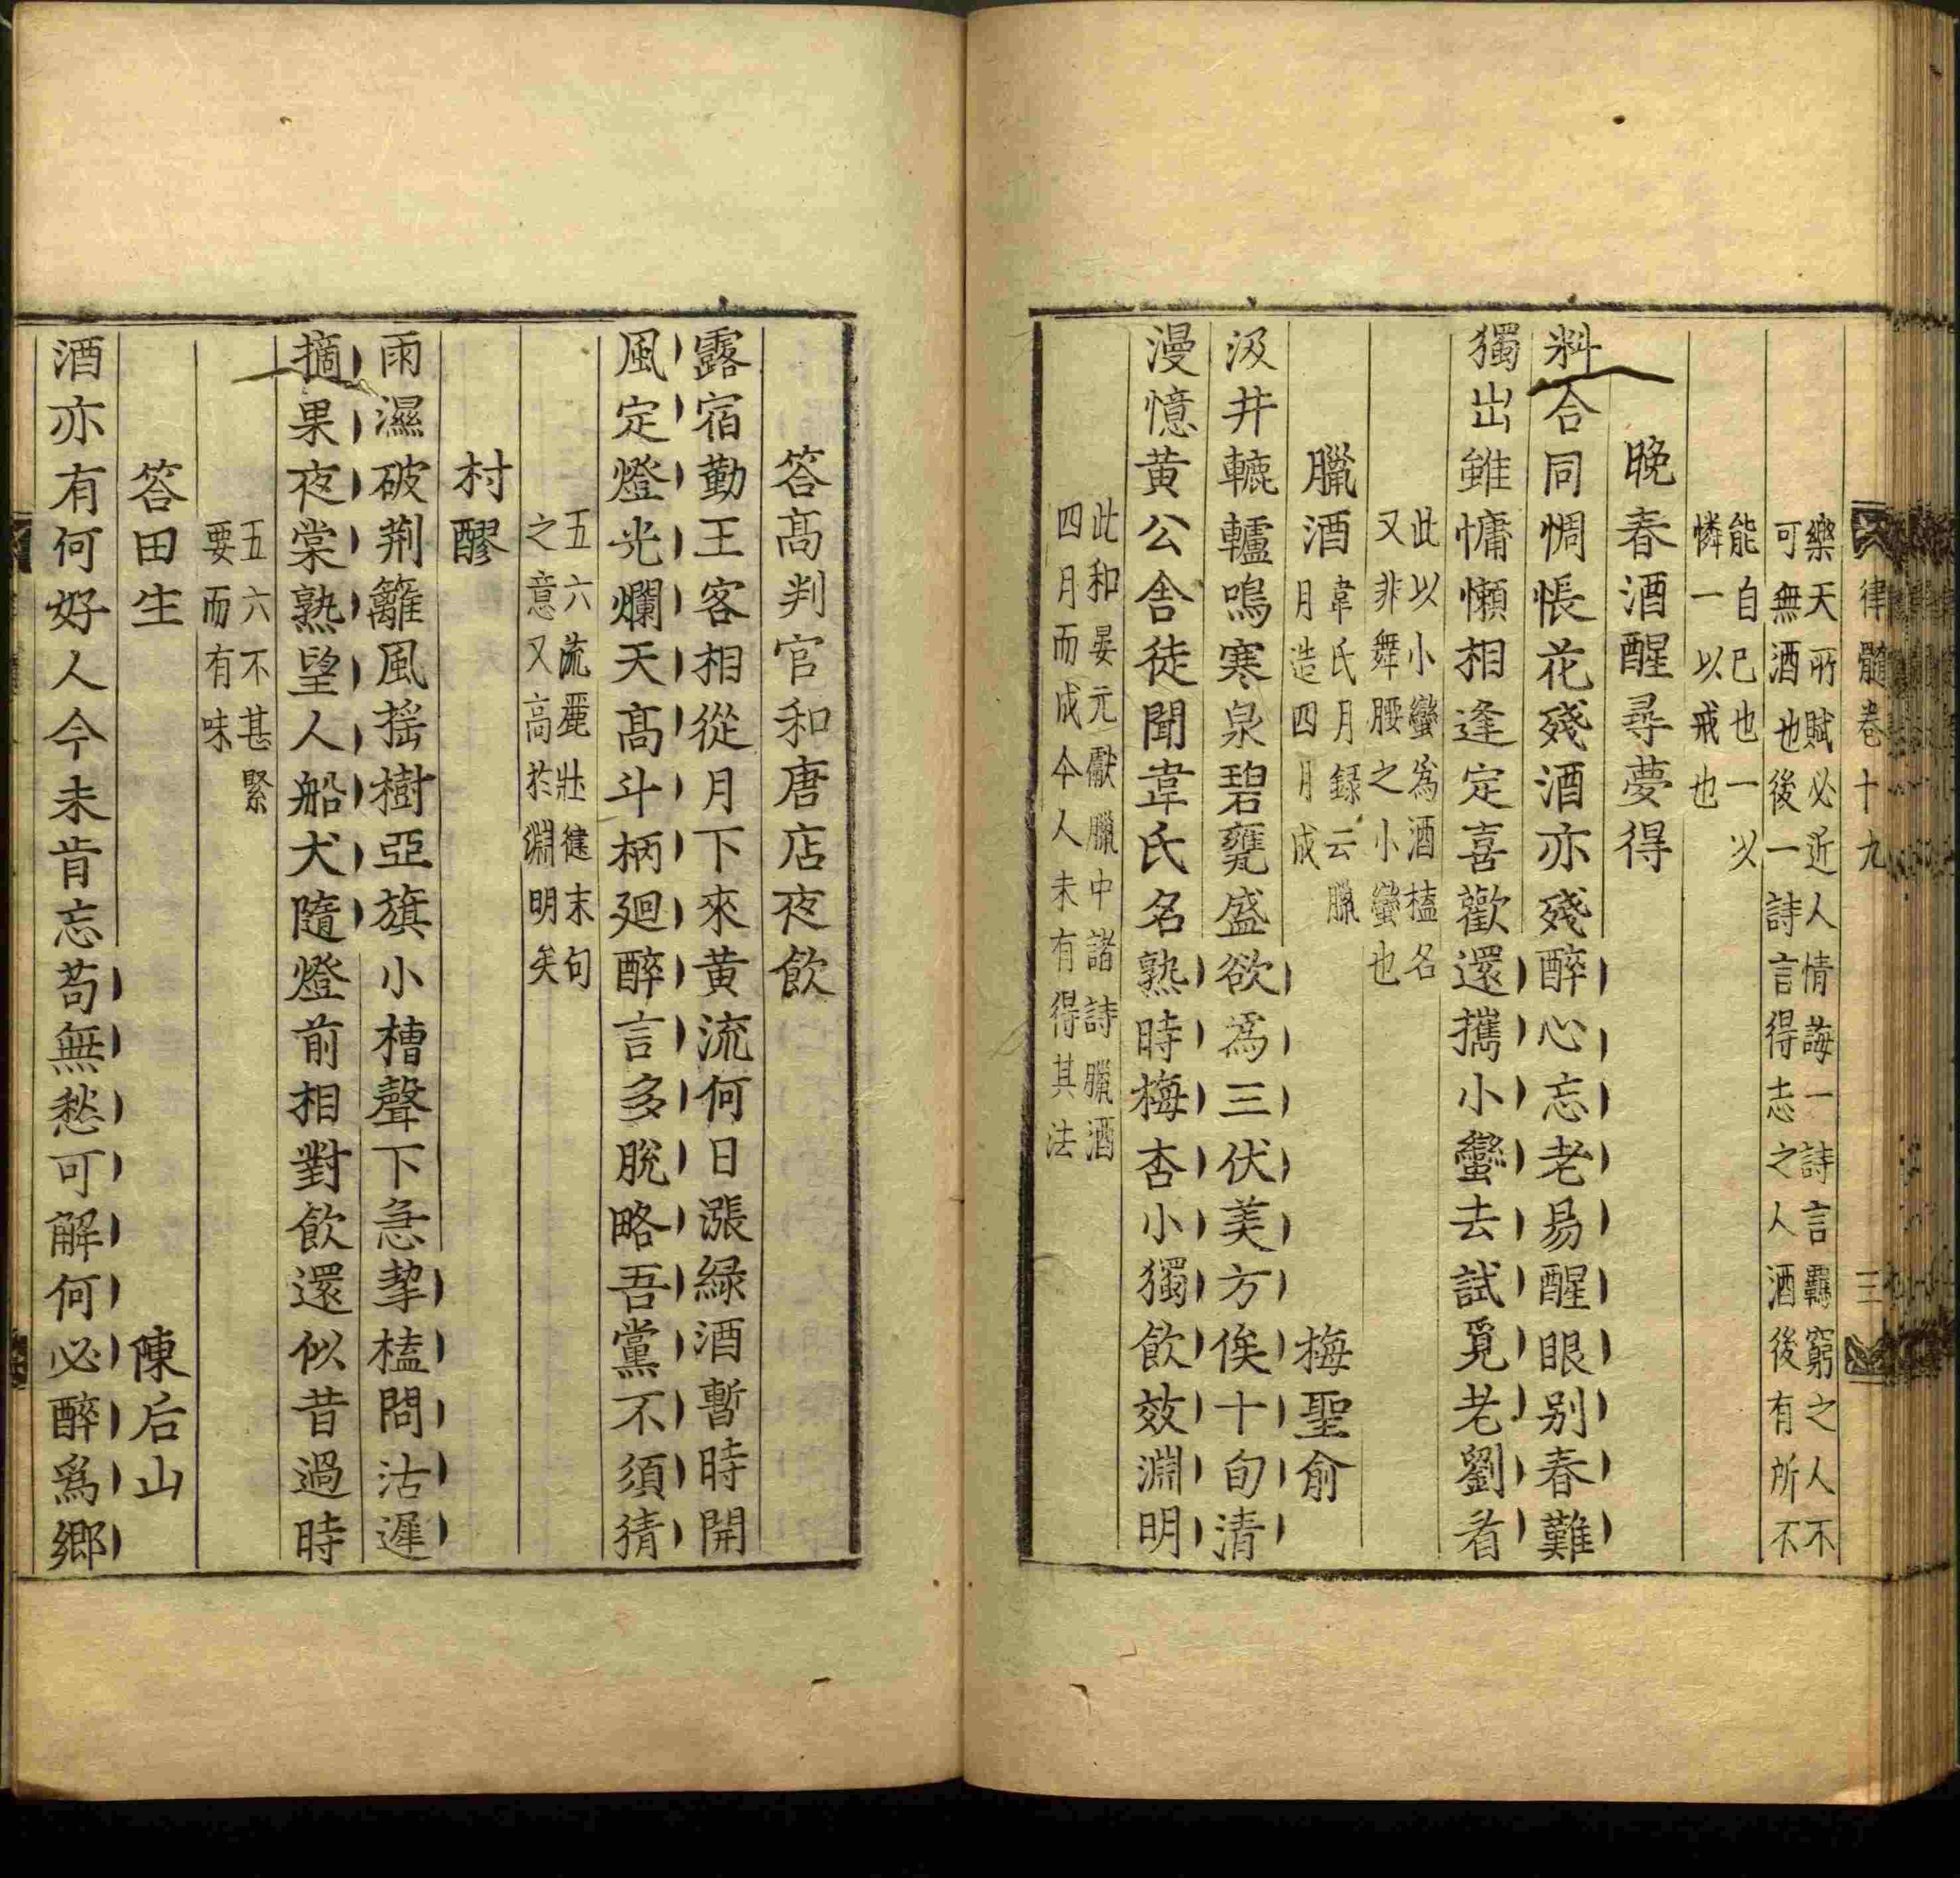 律髓卷十九　三
樂天所賦必近人情誨一詩言羈窮之人不
可無酒也後一詩言得志之人酒後有所不
能自已也一以
憐一以戒也
晚春酒醒尋夢得
料合同惆悵花殘酒亦殘醉心忘老易醒眼别春難
獨出雖慵懶相逢定喜歡還攜小蠻去試覓老劉看
此以小蠻為酒榼名
又非舞腰之小蠻也
臘酒
韋氏月録云臘
月造四月成
梅聖俞
汲井轆轤鳴寒泉碧甕盛欲為三伏美方俟十旬清
漫憶黄公舍徒聞韋氏名熟時梅杏小獨飲效淵明
此和晏元獻臘中諸詩臘酒
四月而成今人未有得其法
答髙判官和唐店夜飲
露宿勤王客相從月下來黄流何日漲緑酒暫時開
風定燈光爛天髙斗柄廻醉言多脫略吾黨不須猜
五六流麗壯健末句
之意又高於淵明矣
村醪
雨濕破荆籬風摇樹亞旗小槽聲下急挈榼問沽遲
摘果夜棠熟望人船犬隨燈前相對飲還似昔過時
五六不甚緊
要而有味
答田生　陳后山
酒亦有何好人今未肯忘苟無愁可解何必醉爲鄉